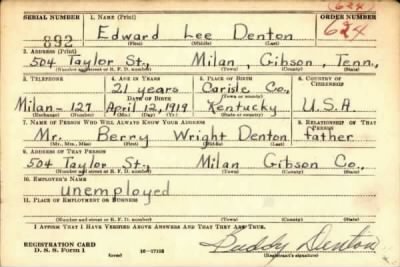 (624)
SERIAL NUMBER 1. NAME (Print) ORDER NUMBER
892 Edward Lee Denton 624
(First) (Middle) (Last)
2. ADDRESS (Print)
504 Taylor St., Milan, Gibson, Tenn.,
(Number and street or R. F. D. number) (Town) (County) (State)
3. TELEPHONE 4. AGE IN YEARS 5. PLACE OF BIRTH 6. COUNTRY OF CITIZENSHIP
21 years Carisle Co.,
DATE OF BIRTH (Town or county)
Milan-127 April 12, 1919 Kentucky U.S.A.
(Exchange) (Number) (Mo.) (Day) (Yr.) (State or country)
7. NAME OF PERSON WHO WILL ALWAYS KNOW YOUR ADDRESS 8. RELATIONSHIP OF THAT PERSON
Mr. Berry Wright Denton father
(Mr., Mrs., Miss) (First) (Middle) (Last)
9. ADDRESS OF THAT PERSON
504 Taylor St., Milan Gibson Co.,
(Number and street or R. F. D. number) (Town) (County) (State)
10. EMPLOYER'S NAME
unemployed
11. PLACE OF EMPLOYMENT OR BUSINESS
(Number and street or R. F. D. number) (Town) (County) (State)
I AFFIRM THAT I HAVE VERIFIED ABOVE ANSWERS AND THAT THEY ARE TRUE.
REGISTRATION CARD
D. S. S. Form 1 (over) Buddy Denton
(Registrant's signature)